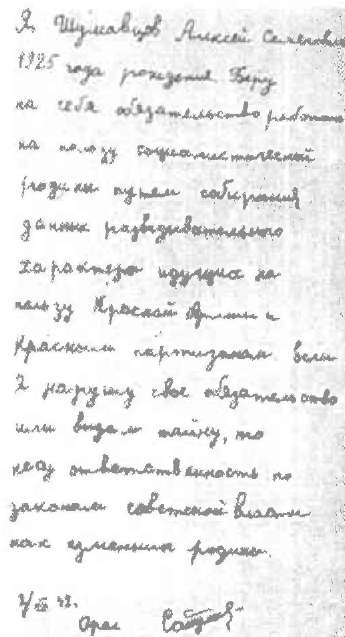 Я Шумавцов Алексей Семенович
1925 года рождения Беру
на себя обязательство работать
на пользу социалистической
родины путем собирания
данных разведывательного
характера идущих на
пользу Красной Армии и
Красным партизанам Если
Я нарушу свое обязательство
или выдам тайну, то
несу ответственность по
законам советской власти
как изменник родины.
42.
Орел